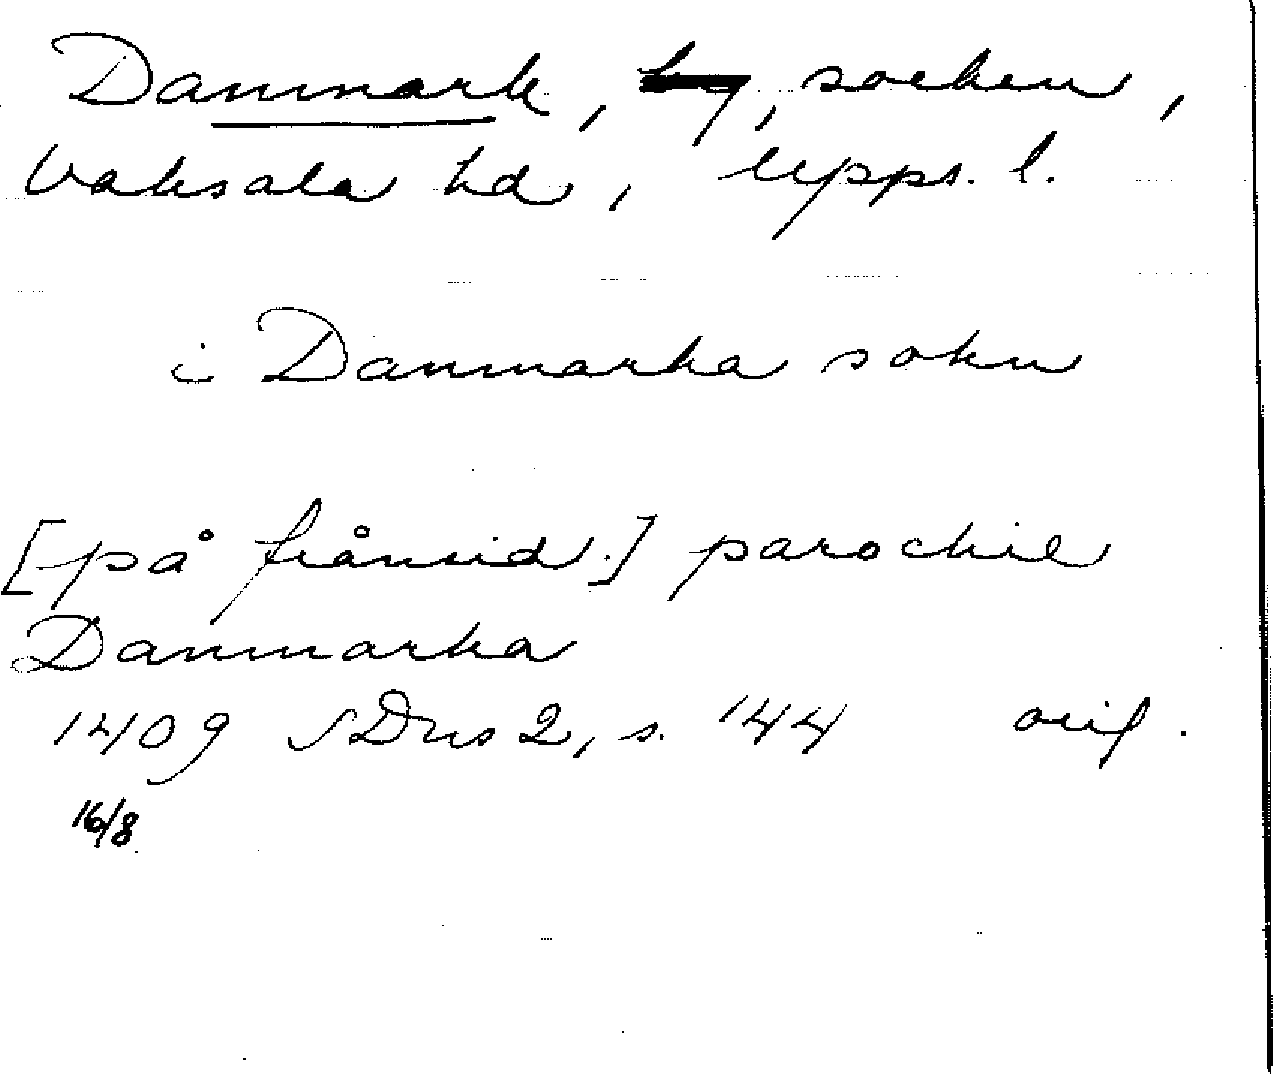 Danmark, , socken,
Vaksala hd, Upps. l.
i Danmarka sokn
[på frånsid.] parochie
Danmarka
1409 SDns 2, s. 144 orig.
16/8